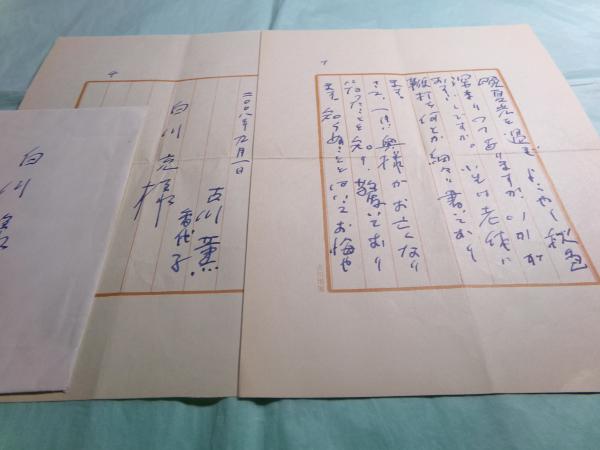 晩夏光も過ぎ、ようやく秋色
深まりつつありますが、いかが
お過しですか。小生は老体に
鞭打ち何とか細々書いており
ます。
さて、奥様がお亡くなり
になったことを知り、驚いており
ます。知らぬこととはいえお悔や
二〇〇八年九月一日
古川 薫
香代子
白川 克様
白川